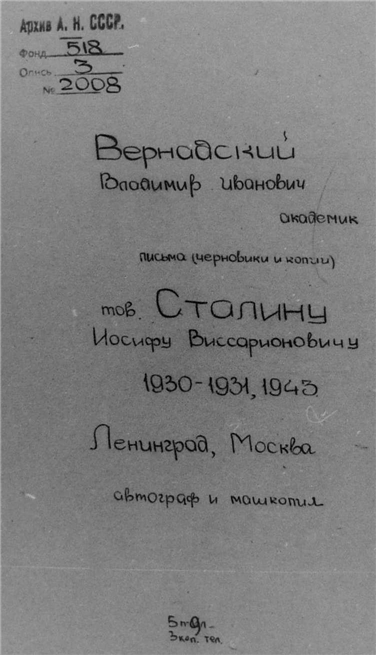 Архив А. Н. СССР.
Фонд 518
Опись 3
№ 2008
Вернадский
Владимир Иванович
академик
письма (черновики и копии)
тов. Сталину
Иосифу Виссарионовичу
1930-1931, 1943
Ленинград, Москва
автограф и машкопия
3 коп. тел.